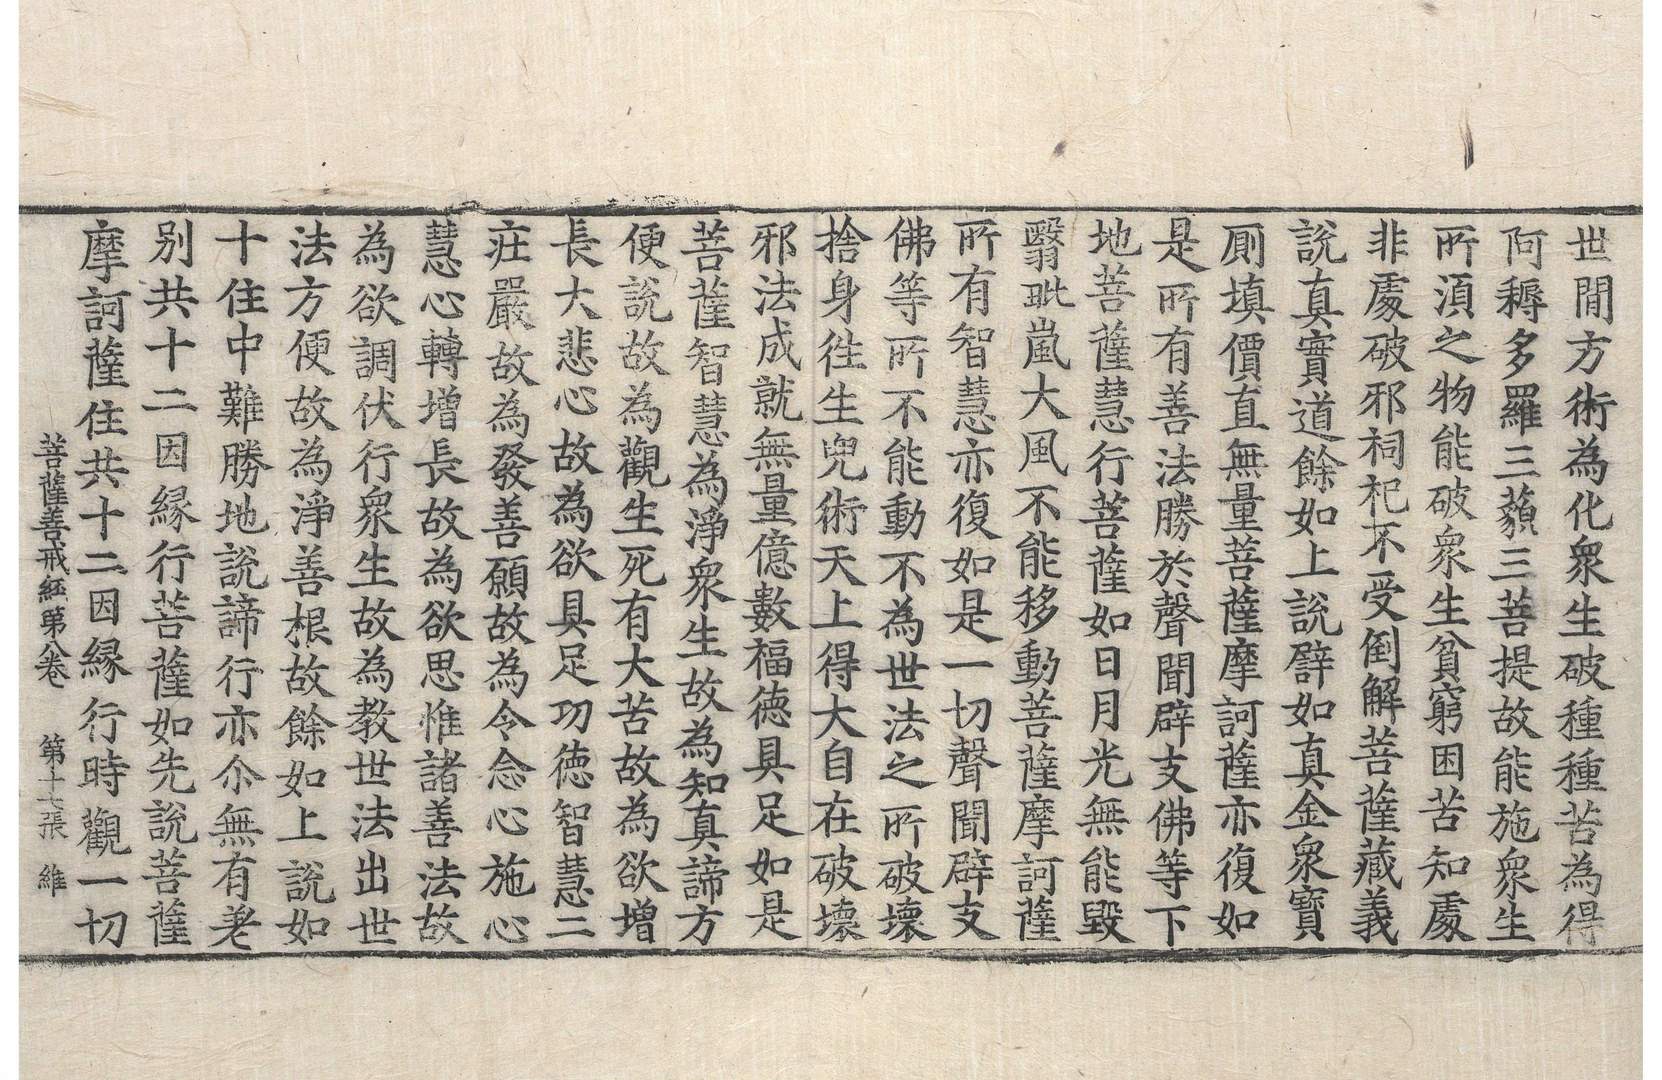 世間方術為化衆生破種種苦為得
阿耨多羅三藐三菩提故能施衆生
所湏之物能破衆生貧窮困苦知處
非處破邪祠祀不受倒解菩薩藏義
說真實道餘如上說譬如真金衆寶
厠填價直無量菩薩摩訶薩亦復如
是所有善法勝於聲聞辟支佛等下
地菩薩慧行菩薩如日月光無能毀
翳毗嵐大風不能移動菩薩摩訶薩
所有智慧亦復如是一切聲聞辟支
佛等所不能動不為世法之所破壞
捨身徃生兜術天上得大自在破壞
邪法成就無量億數福德具足如是
菩薩智慧為淨衆生故為知真諦方
便說故為觀生死有大苦故為欲增
長大悲心故為欲具足功德智慧二
莊嚴故為發善願故為令念心施心
慧心轉增長故為欲思惟諸善法故
為欲調伏行衆生故為教世法出世
法方便故為淨善根故餘如上說如
十住中難勝地說諦行亦尒無有差
别共十二因緣行菩薩如先說菩薩
摩訶薩住共十二因緣行時觀一切
菩薩善戒經第八卷 第十七張 維